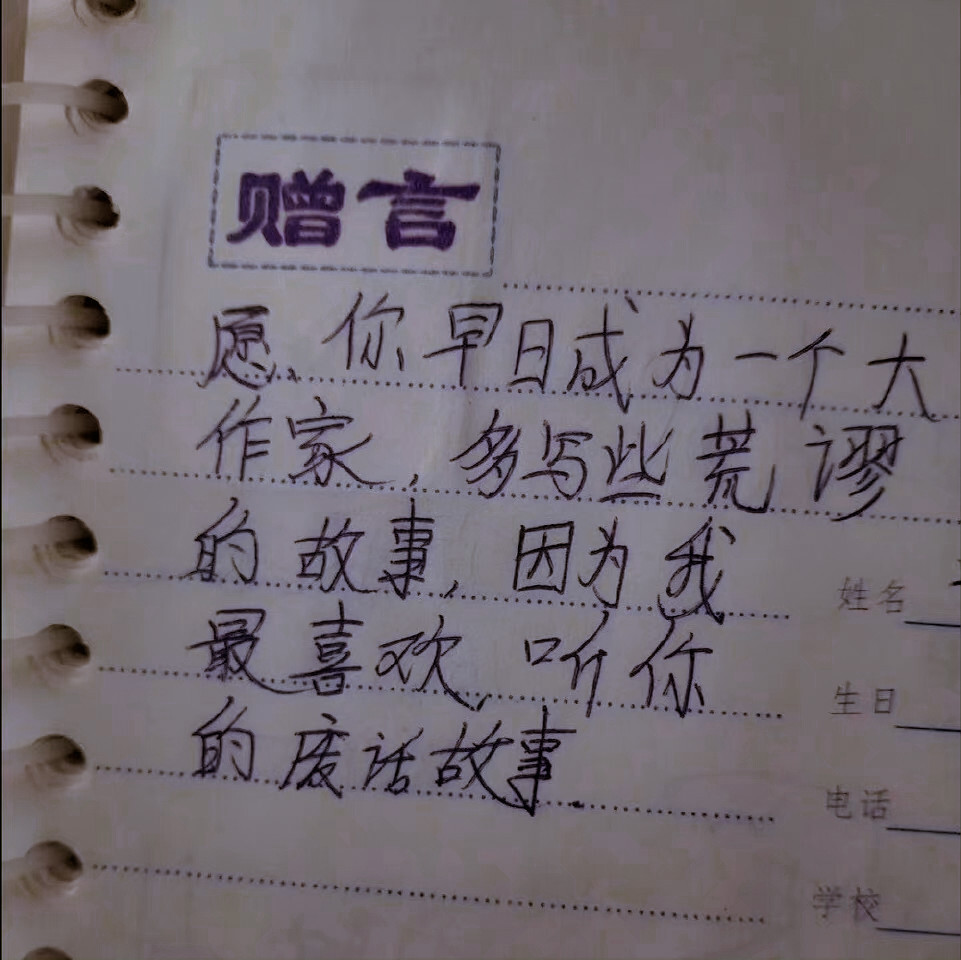 赠言
愿你早日成为一个大
作家,多写些荒谬
的故事,因为我
最喜欢听你
的废话故事.
姓名
生日
电话
学校